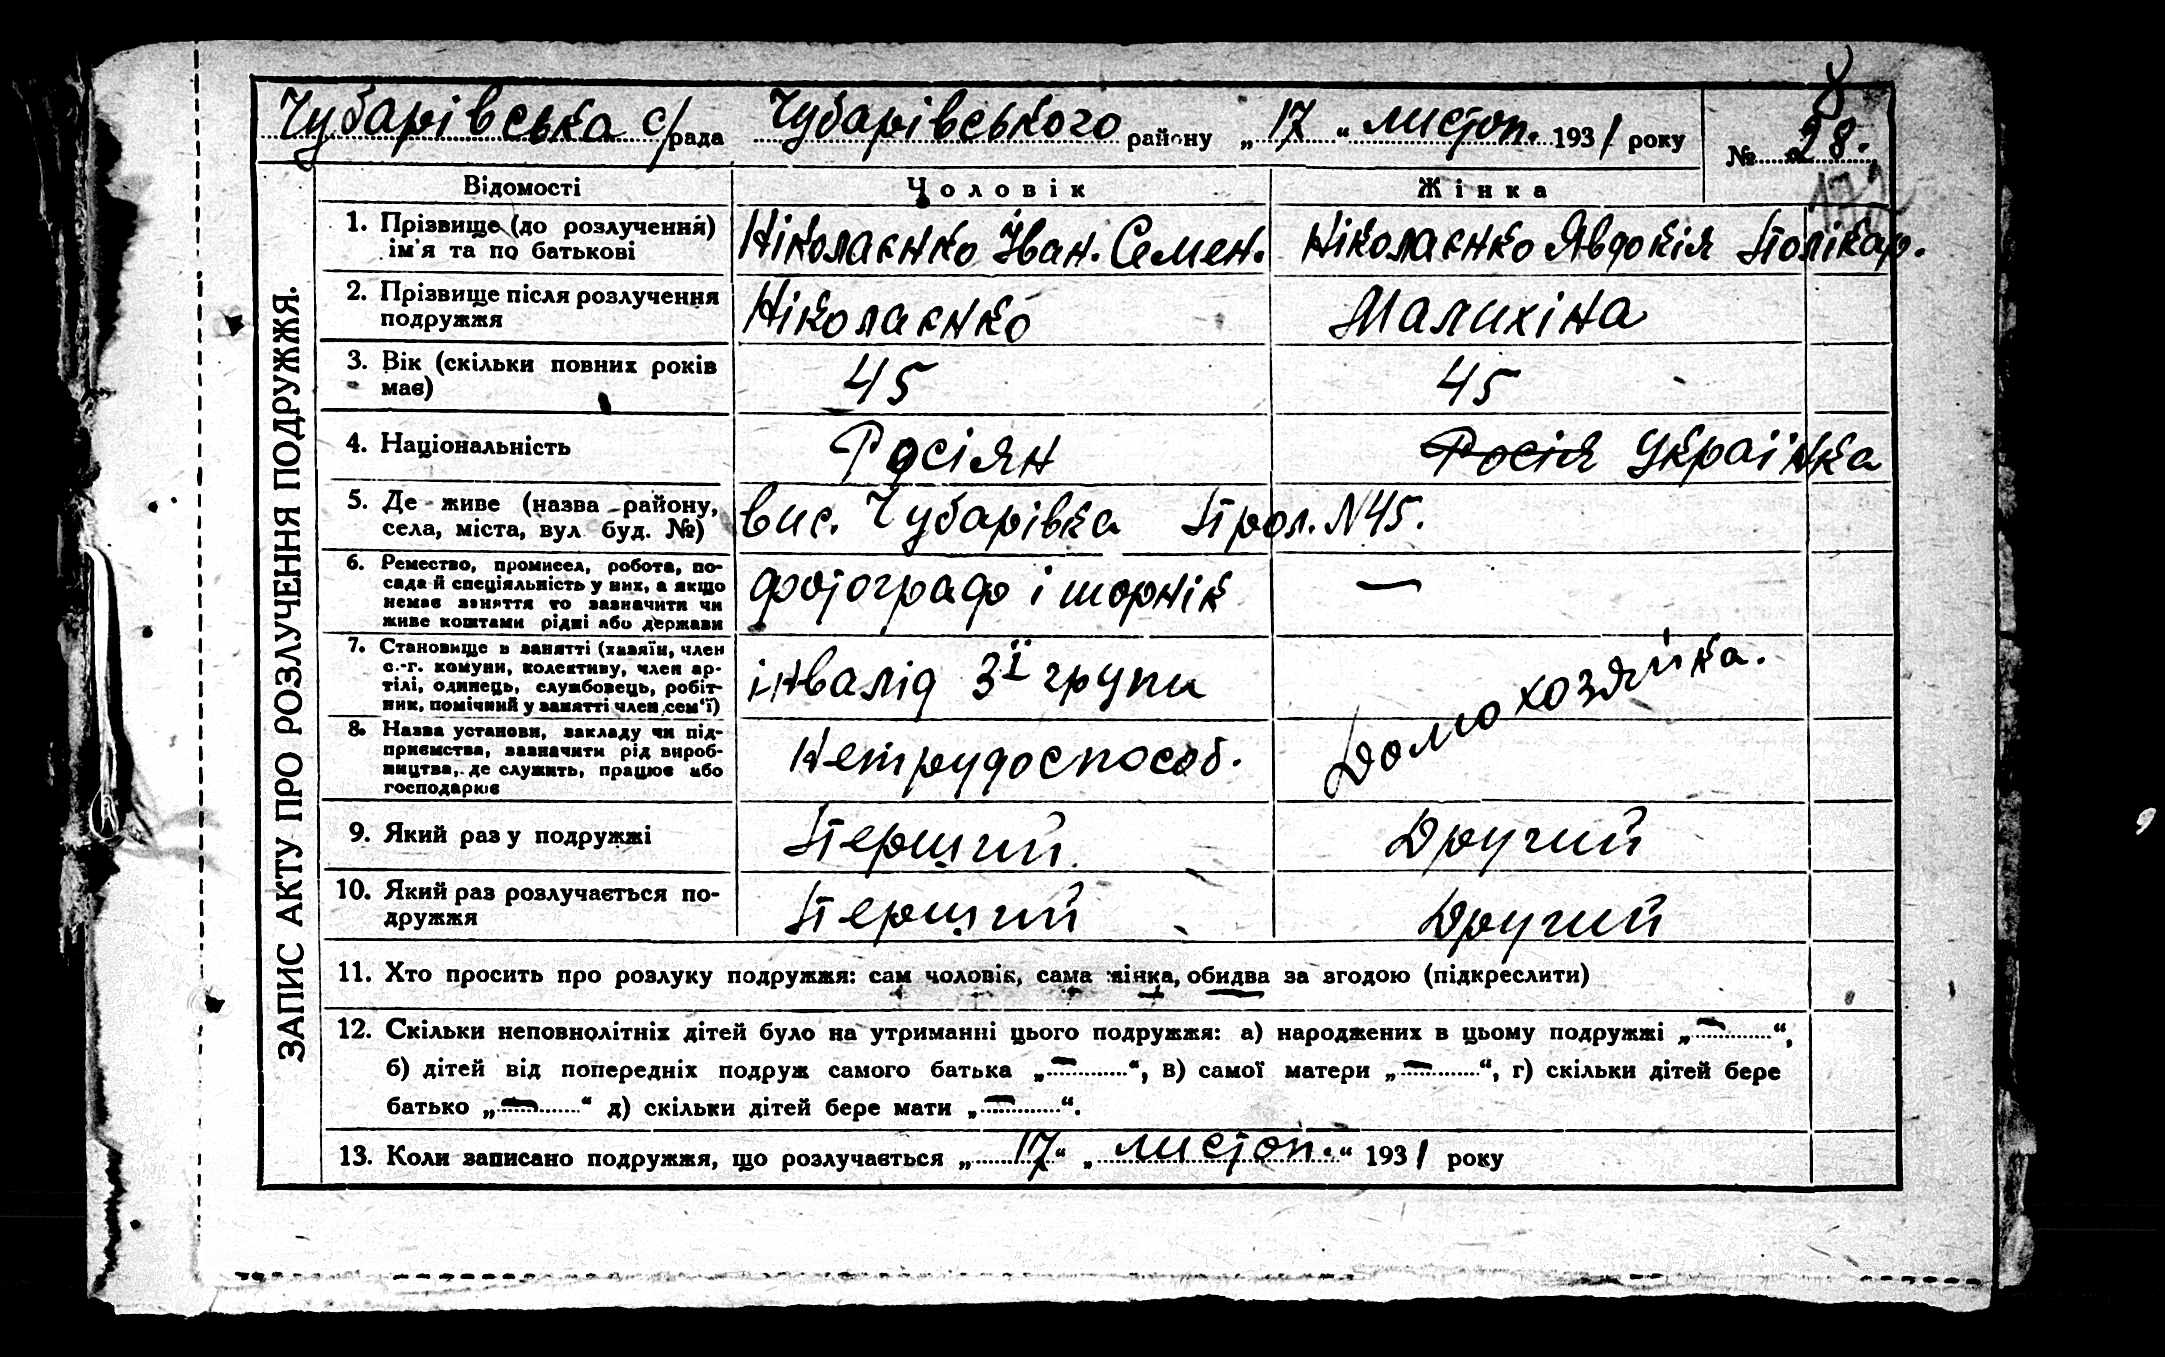 Чубарівська с/рада Чубарівського району „17“ листоп. 1931 року № 28.
Відомості Чоловік Жінка
1. Прізвище (до розлучення) ім'я та по батькові Ніколаєнко Іван. Семен. Ніколаєнко Явдокія Полікар.
2. Прізвище після розлучення подружжя Ніколаєнко Малихіна
3. Вік (скільки повних років має) 45 45
4. Національність Росіян Росія Українка
5. Де живе (назва району, села, міста, вул буд. №) вис. Чубарівка Прол. N45.
6. Ремество, промисел, робота, посада й спеціяльність у них, а якщо немає заняття то зазначити чи живе коштами рідні або держави фотограф і шорнік —
7. Становище в занятті (хазяїн, член с.-г. комуни, колективу, член артілі, одинець, службовець, робітник, помічний у занятті член сем'ї) інвалід 3ї групи Домохозяйка.
8. Назва установи, закладу чи підприємства, зазначити рід виробництва, де служить, працює або господарює Нетрудоспособ.
9. Який раз у подружжі Перший Другий
10. Який раз розлучається подружжя Перший Другий
11. Хто просить про розлуку подружжя: сам чоловік, сама жінка, обидва за згодою (підкреслити)
12. Скільки неповнолітніх дітей було на утриманні цього подружжя: а) народжених в цьому подружжі „—“,
б) дітей від попередніх подруж самого батька „—“, в) самої матери „—“, г) скільки дітей бере
батько „—“ д) скільки дітей бере мати „—“.
13. Коли записано подружжя, що розлучається „17“ „листоп.“ 1931 року
ЗАПИС АКТУ ПРО РОЗЛУЧЕННЯ ПОДРУЖЖЯ.